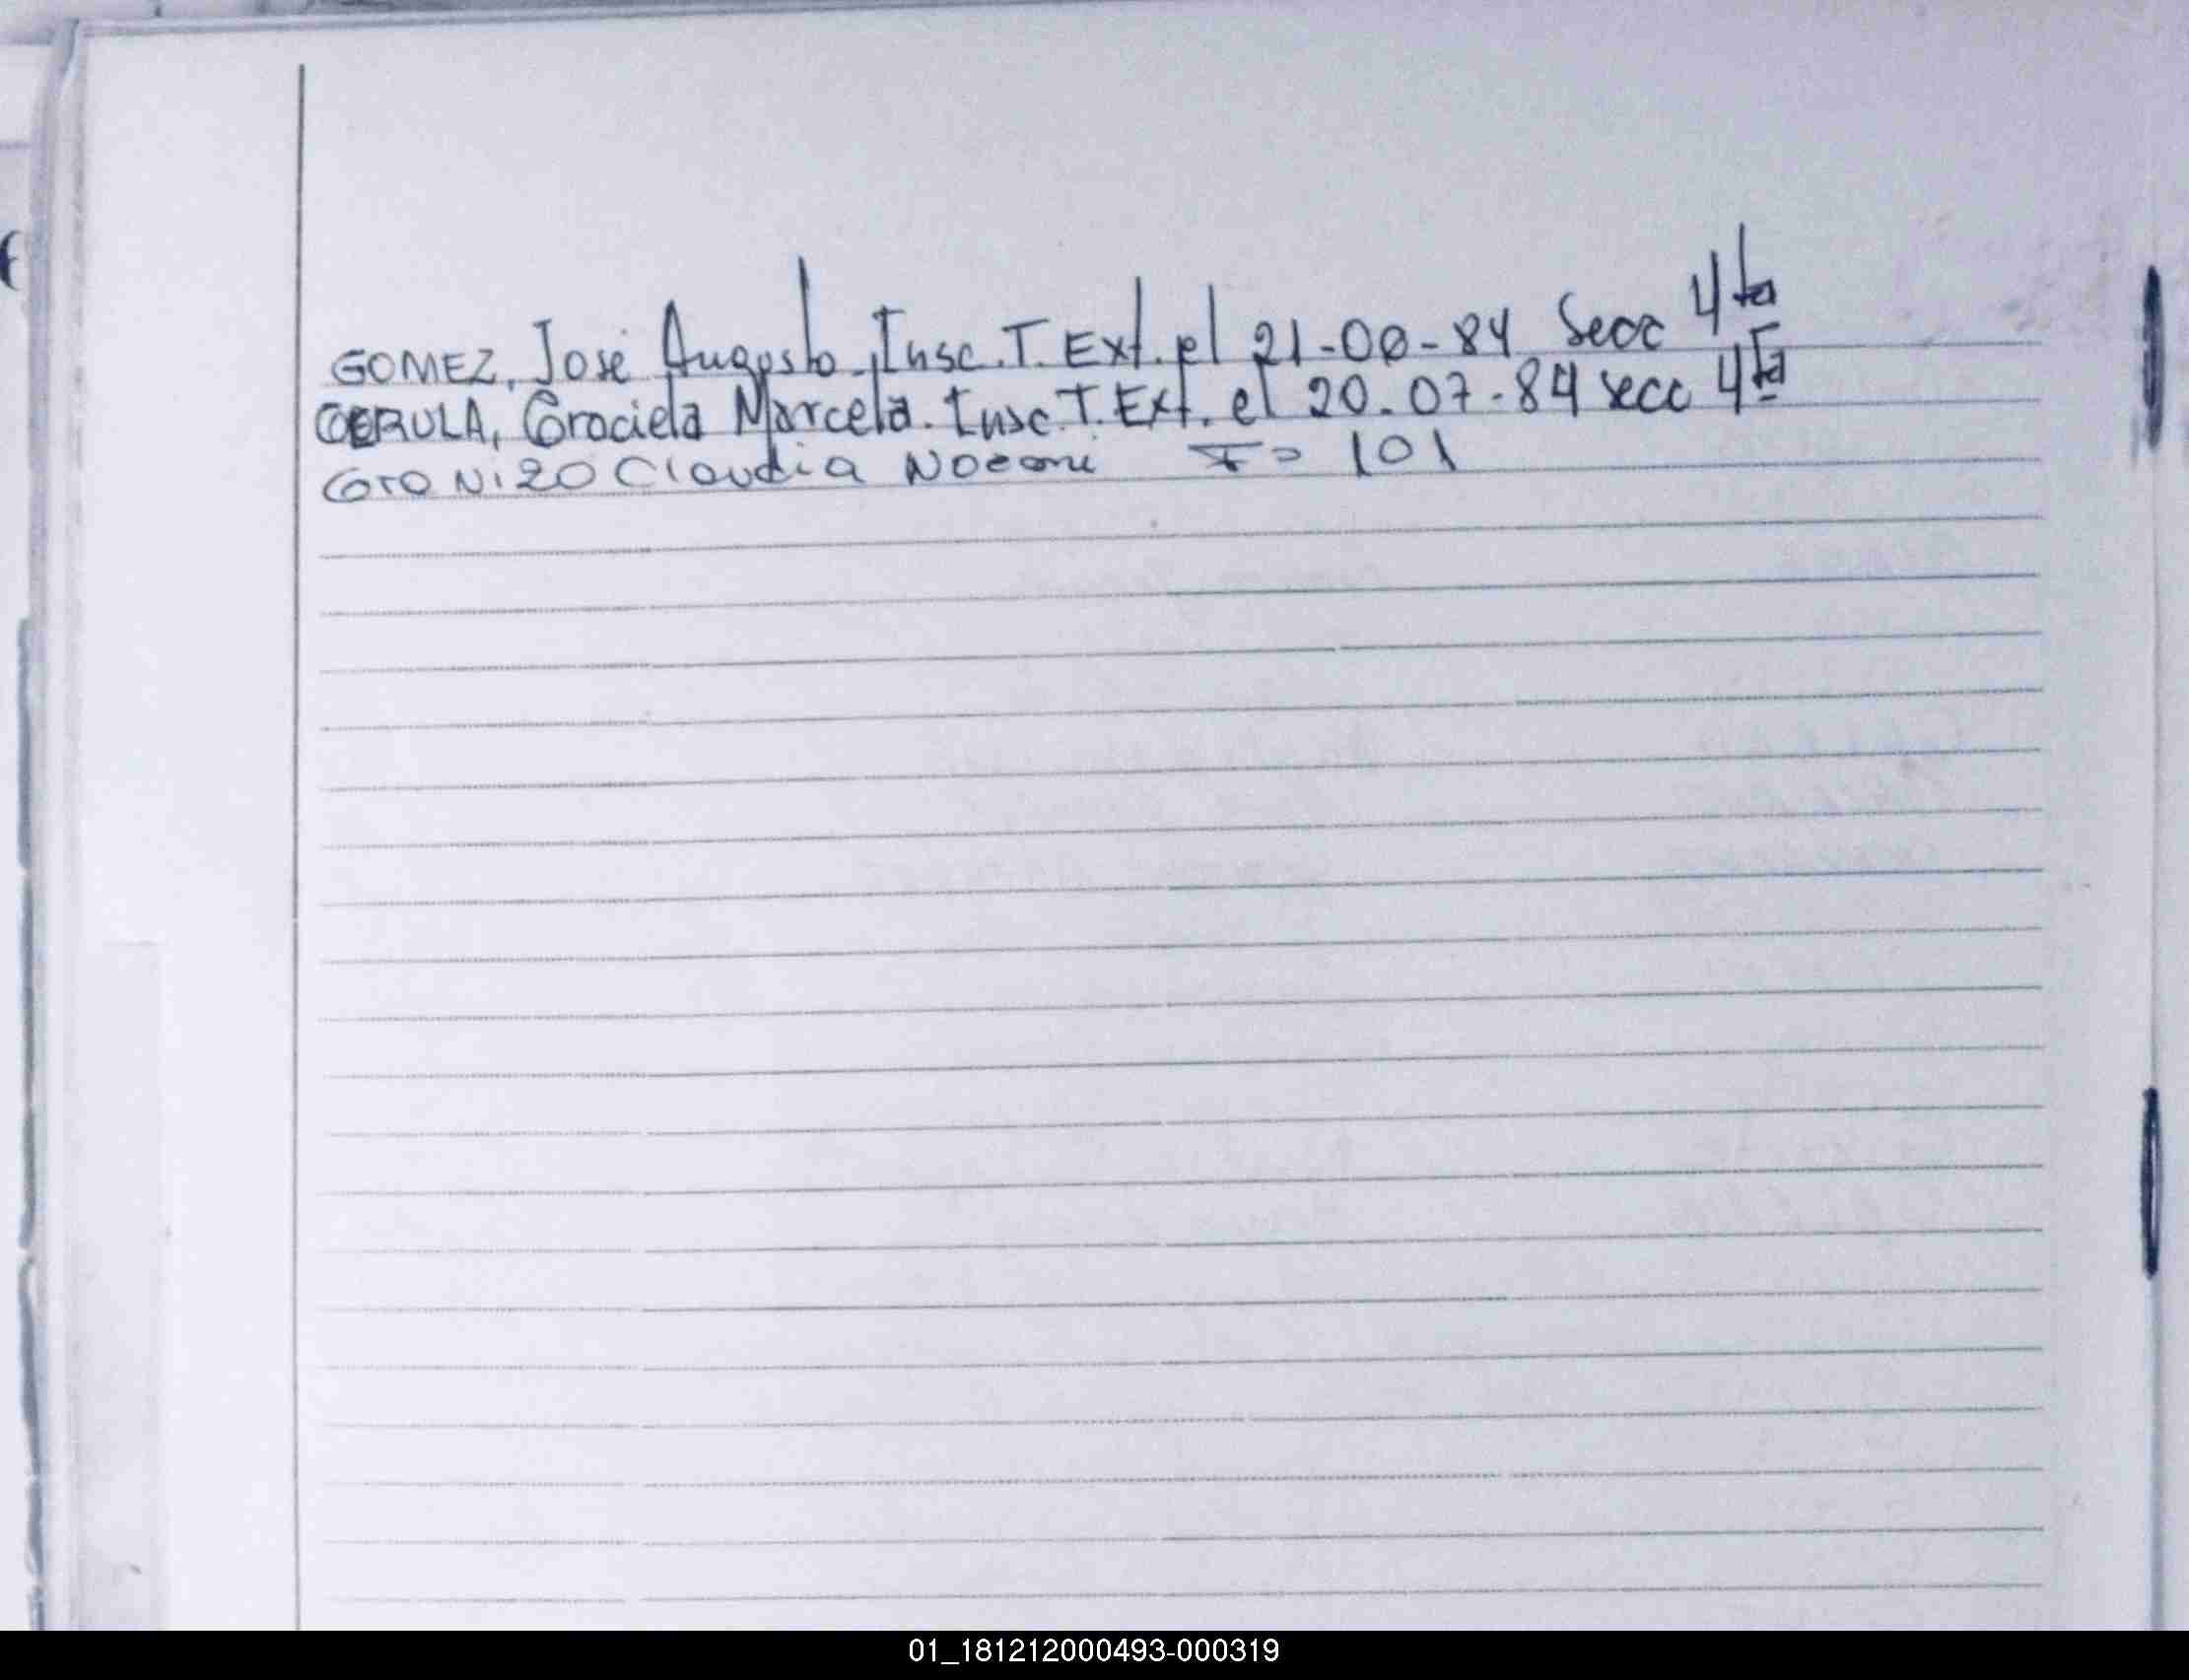 GOMEZ, José Augusto. Insc. T. Ext. el 21-00-84 Secc 4ta
CERULA, Graciela Marcela. Insc. T. Ext. el 20-07-84 secc 4ta
Claudia Noemi F= 101
01_181212000493-000319